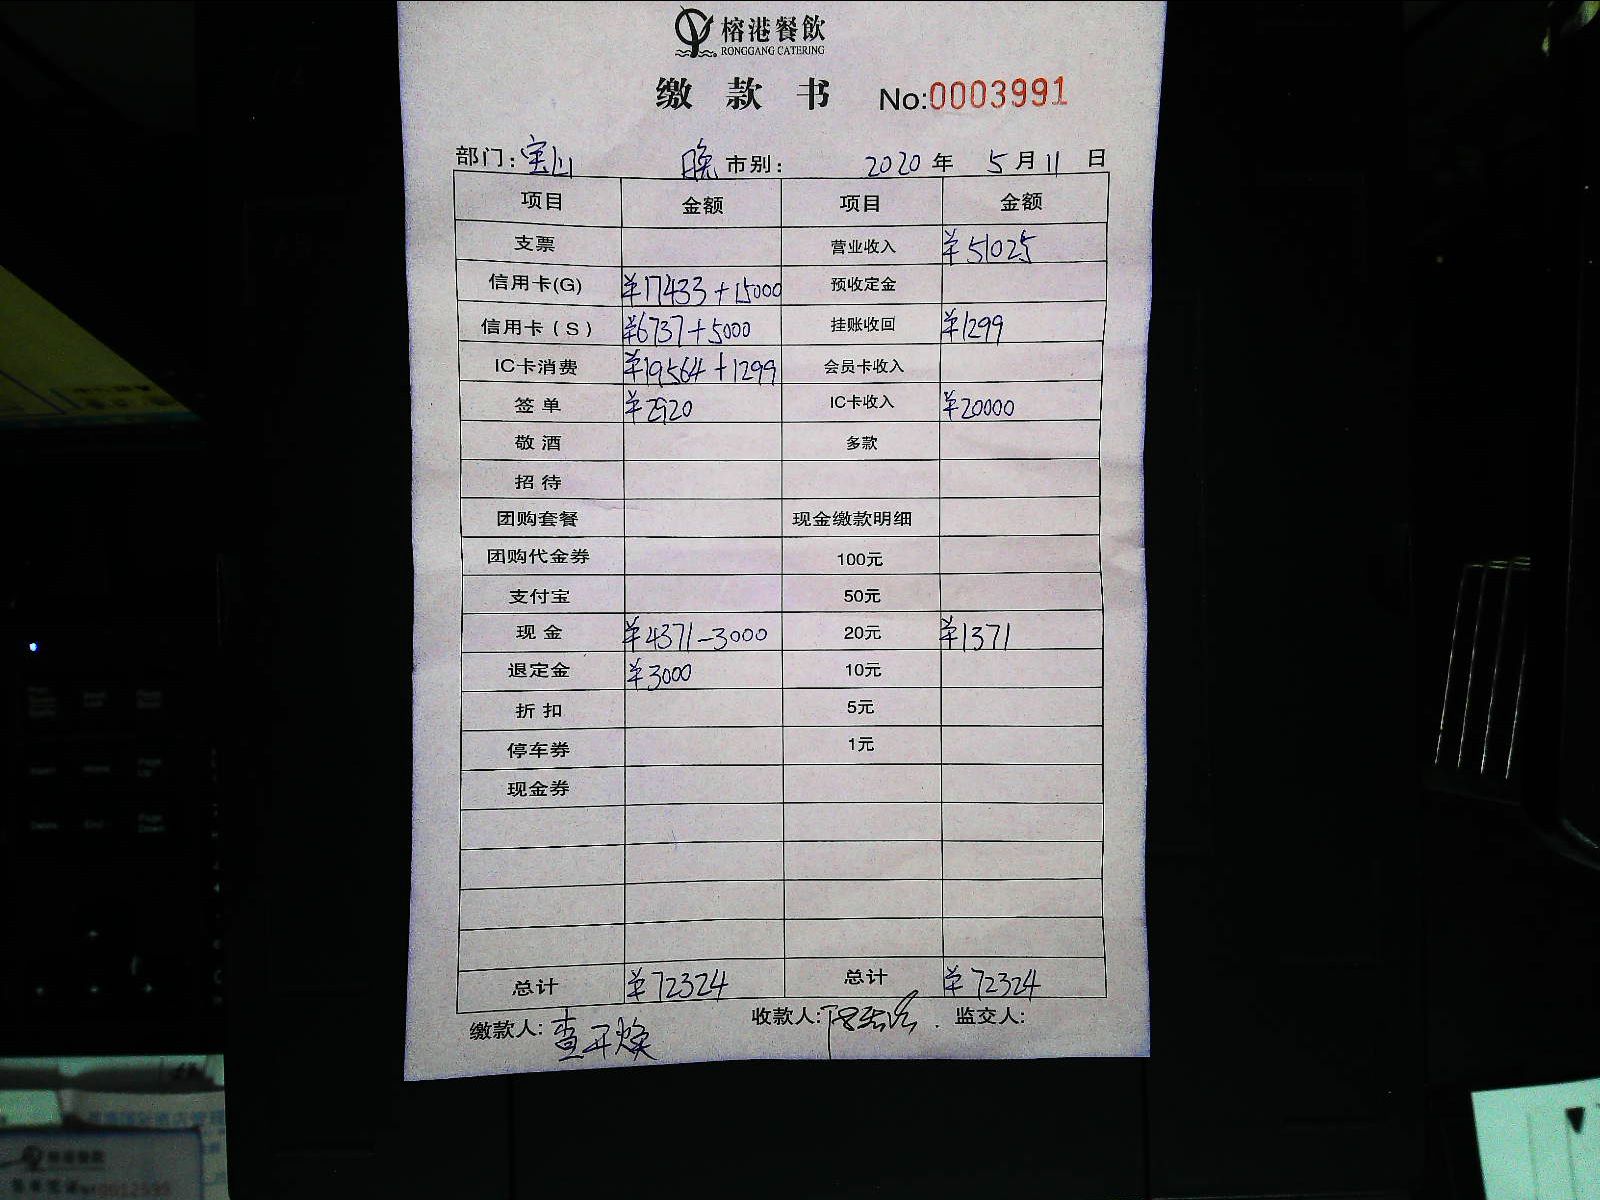 榕港餐飲
RONGGANG CATERING
缴款书 No:0003991
部门:宝山 晚市别: 2020年5月11日
项目 金额 项目 金额
支票 营业收入 ¥51025
信用卡(G) ¥17433+15000 预收定金
信用卡(S) ¥6737+5000 挂账收回 ¥1299
IC卡消费 ¥19564+1299 会员卡收入
签单 ¥2920 IC卡收入 ¥20000
敬酒 多款
招待
团购套餐 现金缴款明细
团购代金券 100元
支付宝 50元
现金 ¥4371-3000 20元 ¥1371
退定金 ¥3000 10元
折扣 5元
停车券 1元
现金券
总计 ¥72324 总计 ¥72324
缴款人: 收款人: 监交人: